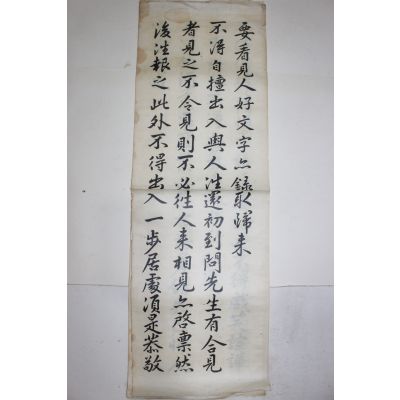 要看見人好文字亦錄取歸来
不得自擅出入與人往還初到問先生有合見
者見之不令見則不必往人来相見亦啓稟然
後往報之此外不得出入一步居處須是恭敬